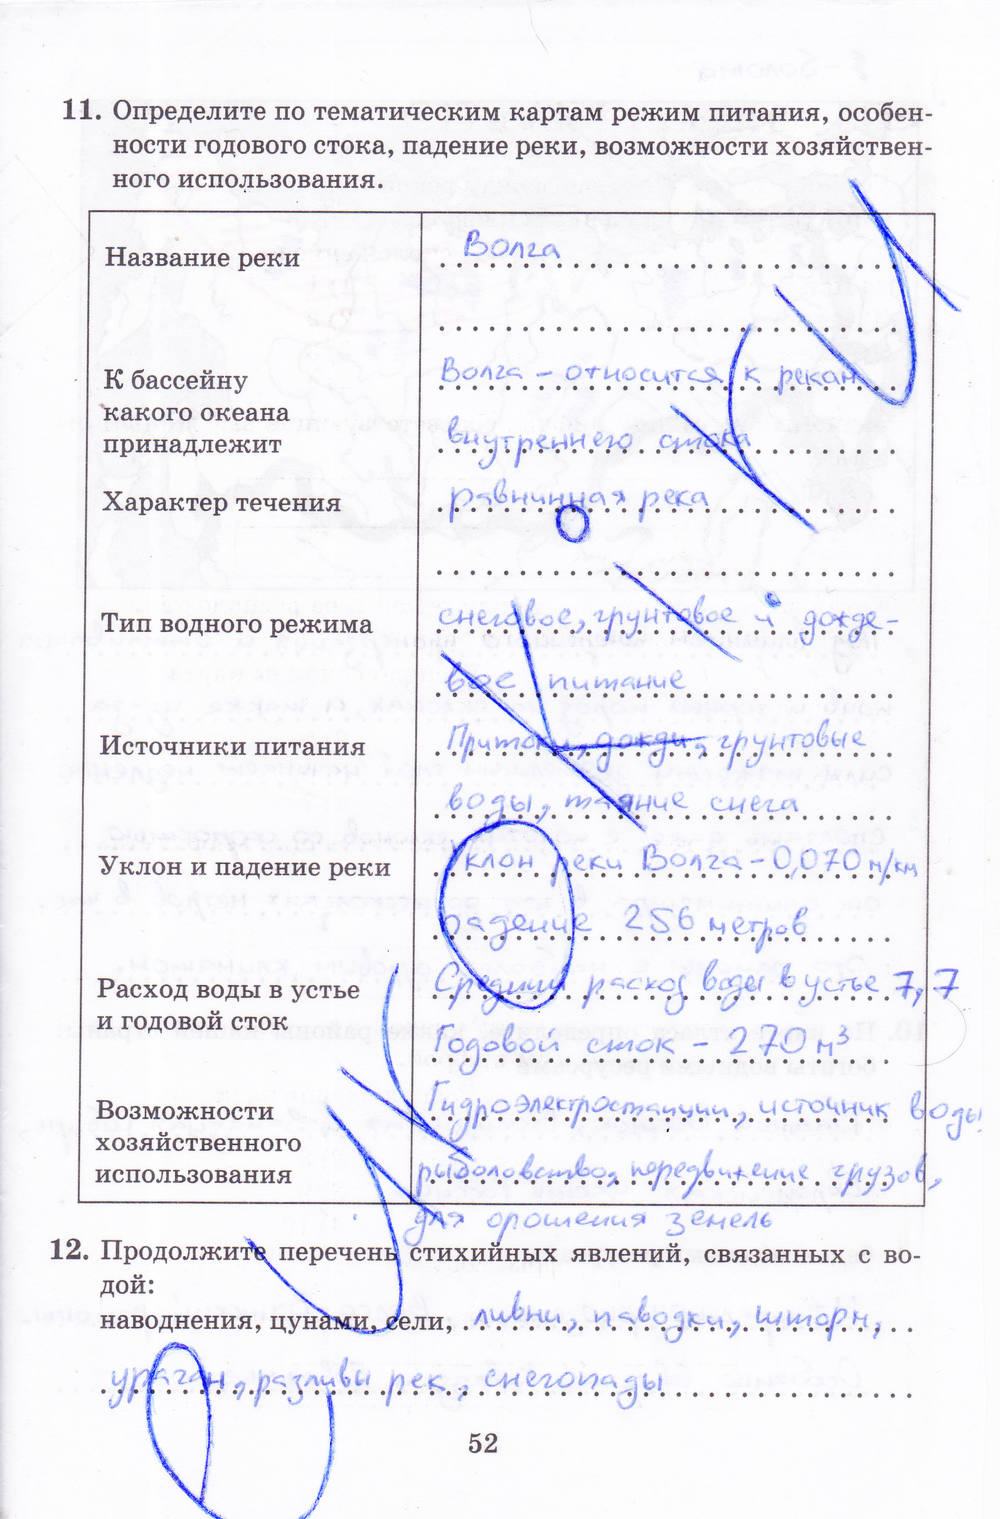 11. Определите по тематическим картам режим питания, особен-
ности годового стока, падение реки, возможности хозяйствен-
ного использования.
Название реки
Волга
К бассейну
какого океана
принадлежит
Волга – относится к рекам
внутреннего стока
Характер течения
равнинная река
Тип водного режима
снеговое, грунтовое и дожде-
вое питание
Источники питания
Притоки, дожди, грунтовые
воды, таяние снега
Уклон и падение реки
Уклон реки Волга – 0,070 м/км
падение 256 метров
Расход воды в устье
и годовой сток
Средний расход воды в устье 7,7
Годовой сток – 270 м³
Возможности
хозяйственного
использования
Гидроэлектростанции, источник воды
рыболовство, передвижение грузов,
для орошения земель
12. Продолжите перечень стихийных явлений, связанных с во-
дой:
наводнения, цунами, сели, ливни, паводки, шторм,
ураган, разливы рек, снегопады
52